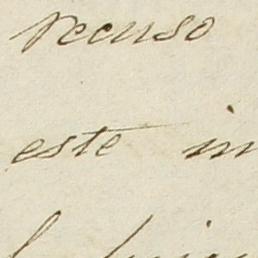 recuso
este in